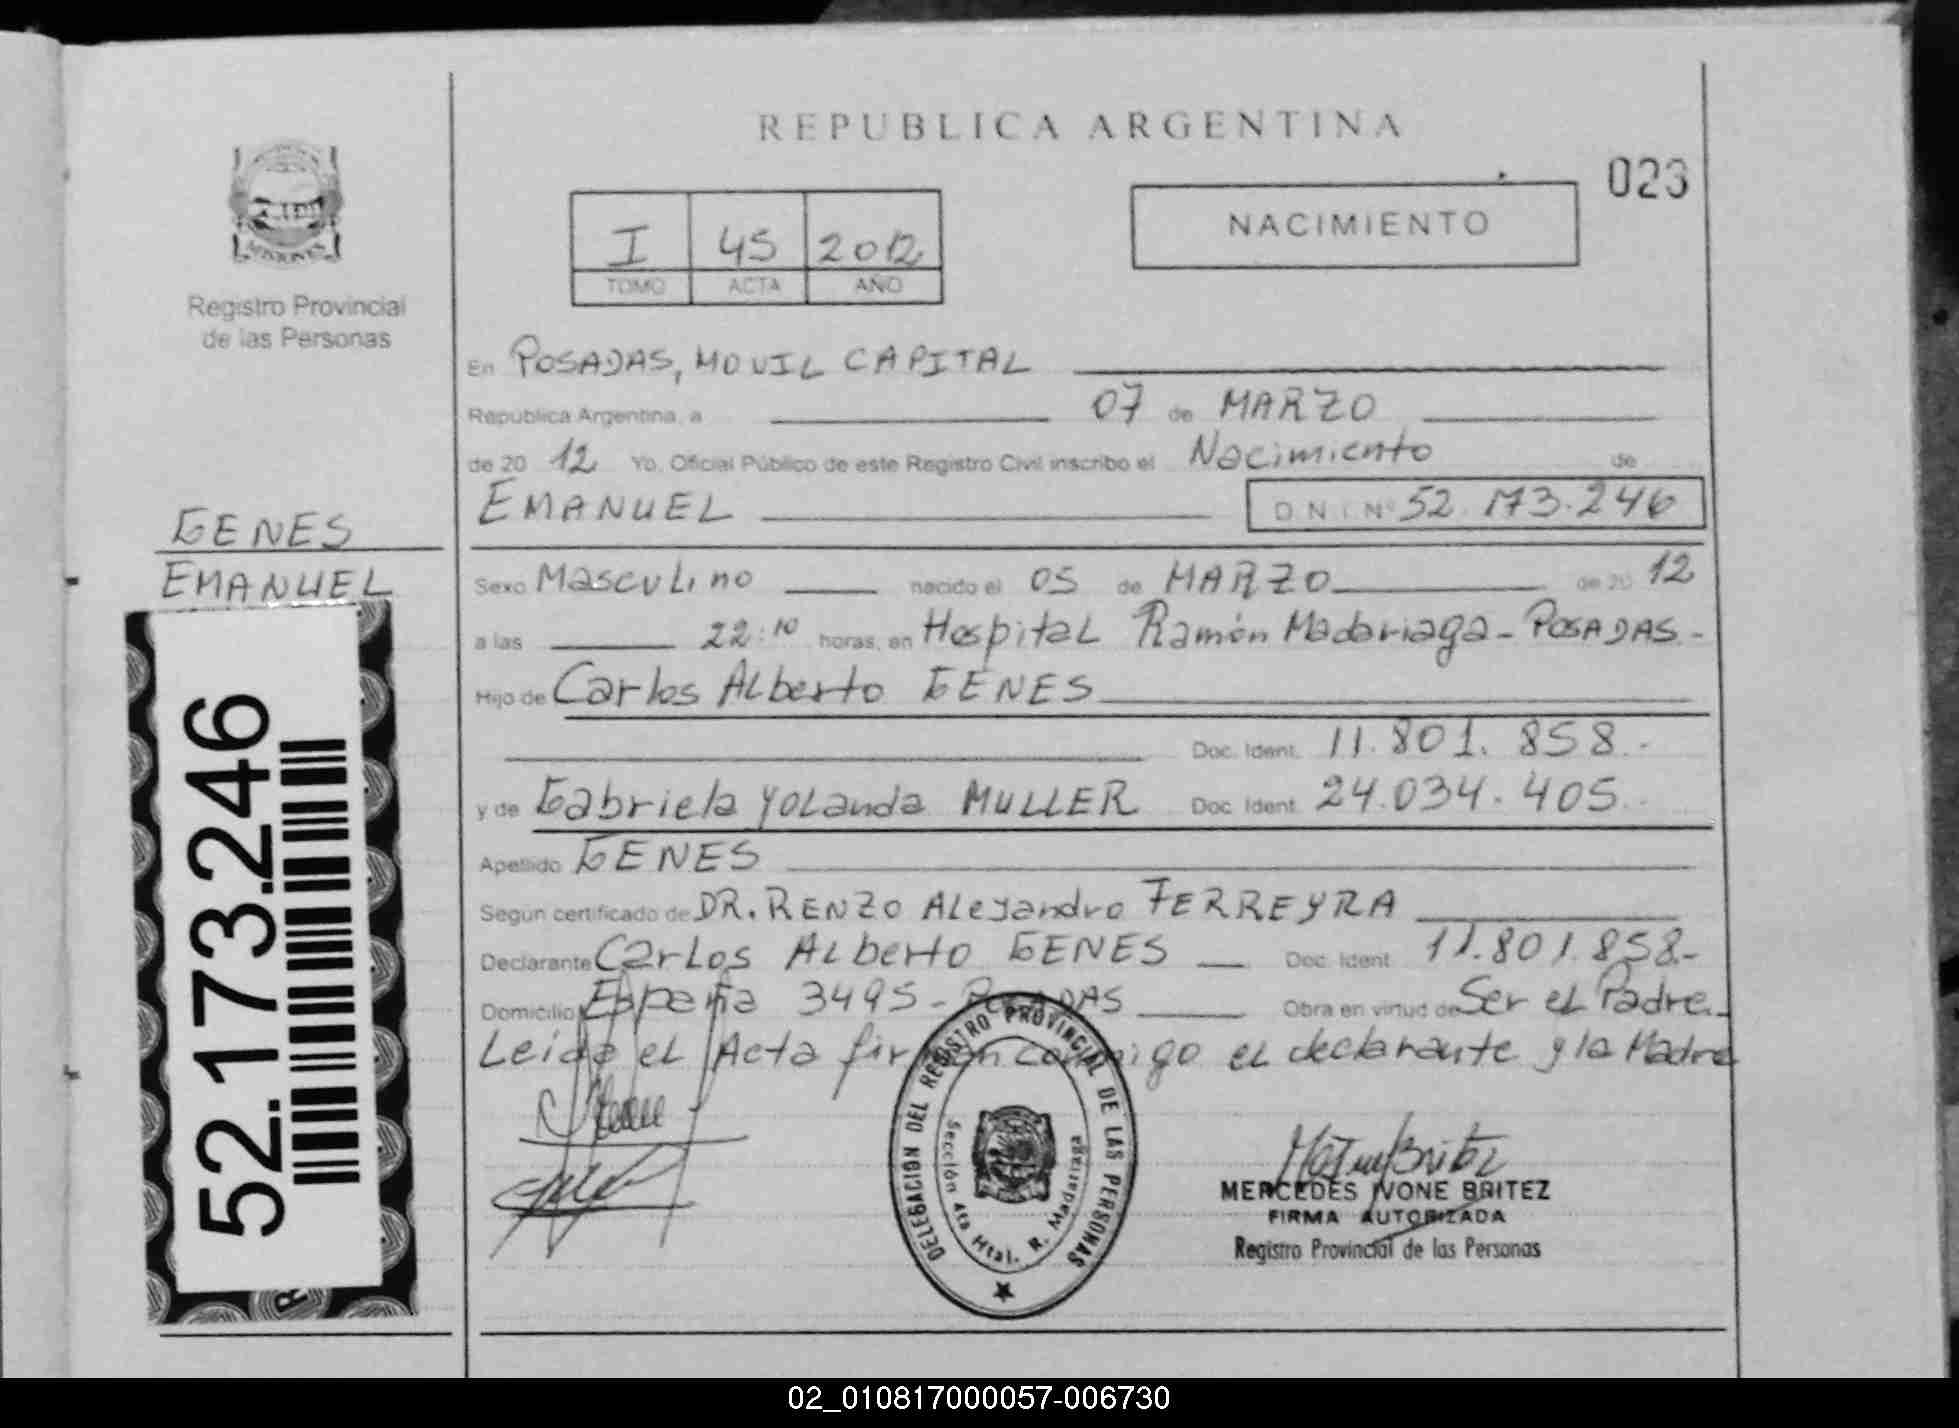 REPUBLICA ARGENTINA
023
I 45 2012
TOMO ACTA AÑO
NACIMIENTO
MISIONES
Registro Provincial
de las Personas
En POSADAS, MOVIL CAPITAL
República Argentina, a 07 de MARZO
de 20 12 Yo, Oficial Público de este Registro Civil inscribo el Nacimiento de
EMANUEL D.N.I. Nº 52.173.246
GENES
EMANUEL
Sexo Masculino nacido el 05 de MARZO de 20 12
a las 22:10 horas, en Hospital Ramón Madariaga - POSADAS.-
Hijo de Carlos Alberto GENES
Doc. Ident. 11.801.858.-
y de Gabriela Yolanda MULLER Doc. Ident. 24.034.405.-
Apellido GENES
Según certificado de DR. RENZO Alejandro FERREYRA
Declarante Carlos Alberto GENES Doc. Ident. 11.801.858.-
Domicilio España 3495 - POSADAS Obra en virtud de Ser el Padre.-
Leida el Acta firman conmigo el declarante y la Madre
52.173.246
DELEGACION DEL REGISTRO PROVINCIAL DE LAS PERSONAS
Sección 4ta Htal. R. Madariaga
MERCEDES IVONE BRITEZ
FIRMA AUTORIZADA
Registro Provincial de las Personas
02_010817000057-006730